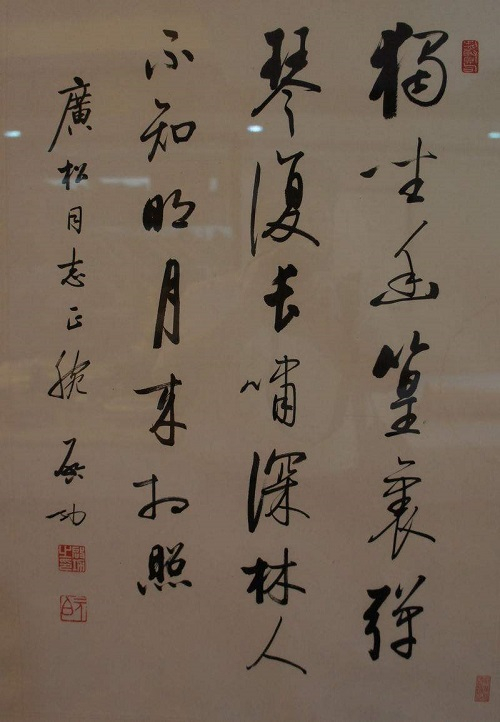 獨坐幽篁裏彈
琴復長嘯深林人
不知明月來相照
廣松同志正腕 啟功